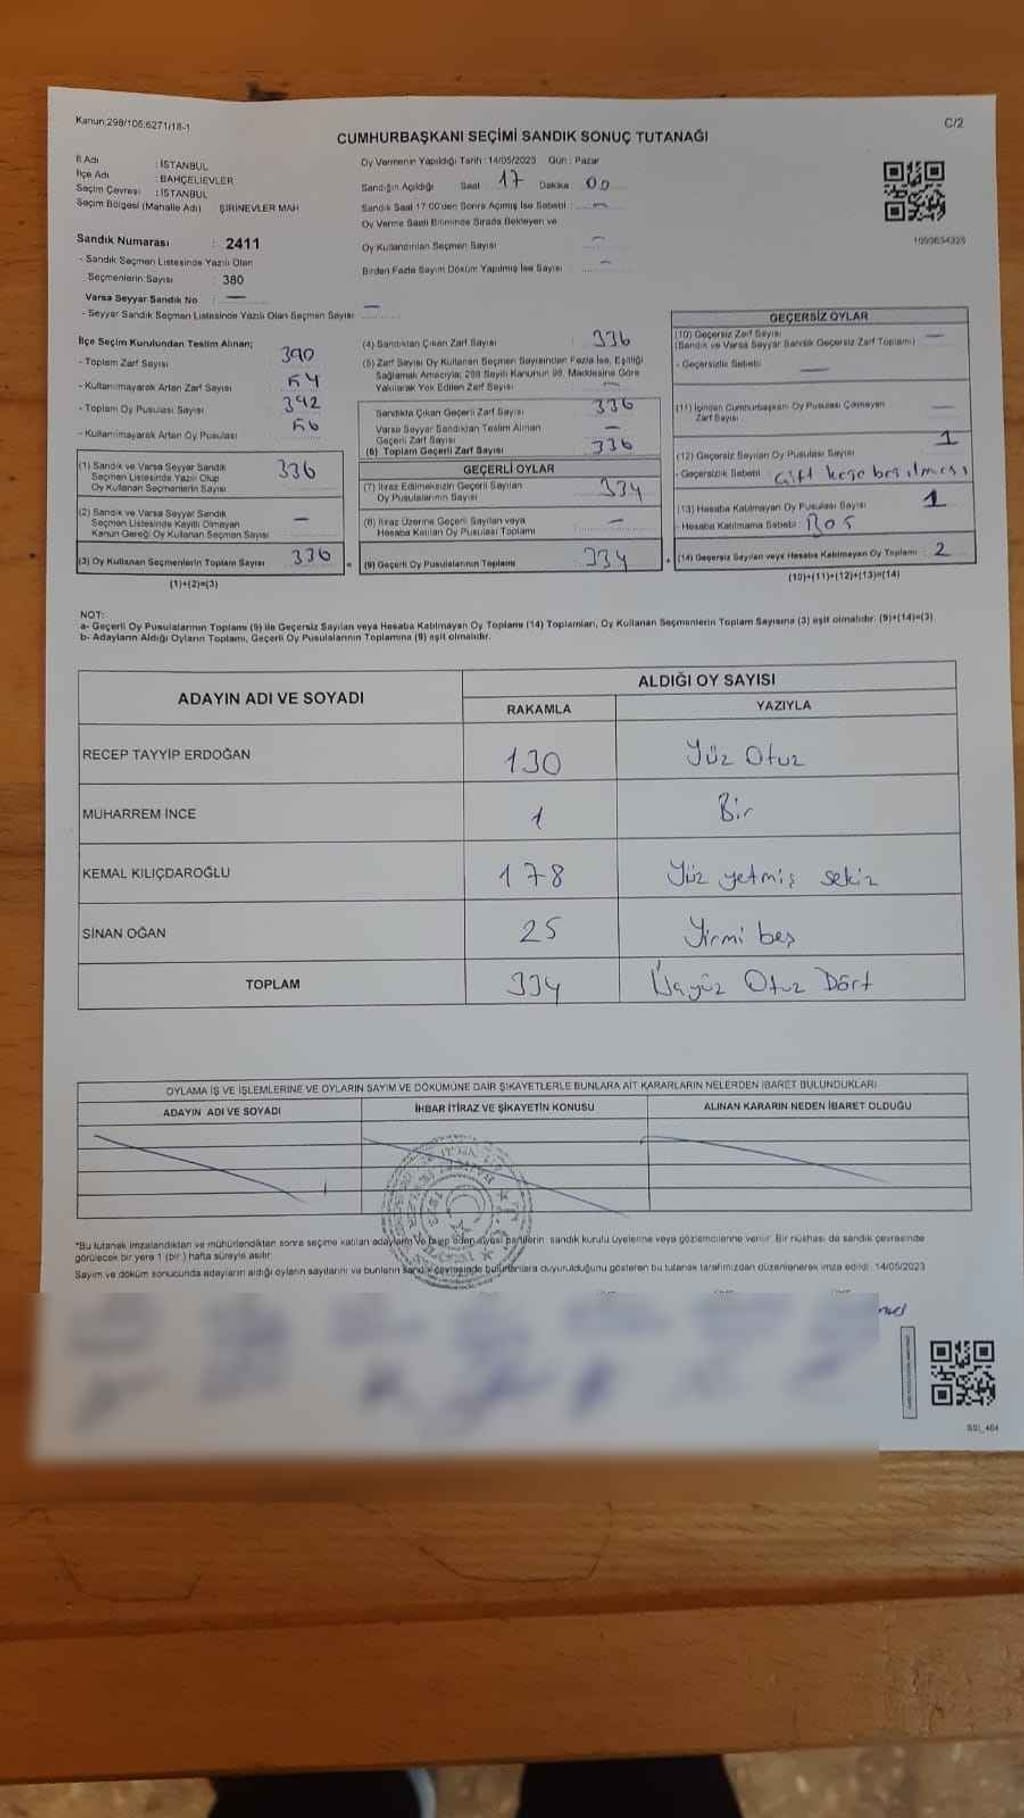 Kanun:298/105;6271/18-1
C/2
CUMHURBAŞKANI SEÇİMİ SANDIK SONUÇ TUTANAĞI
İl Adı : İSTANBUL
İlçe Adı : BAHÇELİEVLER
Seçim Çevresi : İSTANBUL
Seçim Bölgesi (Mahalle Adı) ŞİRİNEVLER MAH
Oy Vermenin Yapıldığı Tarih : 14/05/2023 Gün : Pazar
Sandığın Açıldığı Saat 17 Dakika 00
Sandık Saat 17:00'den Sonra Açılmış İse Sebebi : —
Oy Verme Saati Bitiminde Sırada Bekleyen ve
Oy Kullandırılan Seçmen Sayısı —
Birden Fazla Sayım Döküm Yapılmış İse Sayısı —
Sandık Numarası : 2411
- Sandık Seçmen Listesinde Yazılı Olan
Seçmenlerin Sayısı : 380
Varsa Seyyar Sandık No : —
- Seyyar Sandık Seçmen Listesinde Yazılı Olan Seçmen Sayısı —
İlçe Seçim Kurulundan Teslim Alınan;
- Toplam Zarf Sayısı 390
- Kullanılmayarak Artan Zarf Sayısı 54
- Toplam Oy Pusulası Sayısı 392
- Kullanılmayarak Artan Oy Pusulası 56
(1) Sandık ve Varsa Seyyar Sandık
Seçmen Listesinde Yazılı Olup
Oy Kullanan Seçmenlerin Sayısı 336
(2) Sandık ve Varsa Seyyar Sandık
Seçmen Listesinde Kayıtlı Olmayan
Kanun Gereği Oy Kullanan Seçmen Sayısı —
(3) Oy Kullanan Seçmenlerin Toplam Sayısı 336
(1)+(2)=(3)
(4) Sandıktan Çıkan Zarf Sayısı : 336
(5) Zarf Sayısı Oy Kullanan Seçmen Sayısından Fazla İse, Eşitliği
Sağlamak Amacıyla; 298 Sayılı Kanunun 98. Maddesine Göre
Yakılarak Yok Edilen Zarf Sayısı —
Sandıkta Çıkan Geçerli Zarf Sayısı 336
Varsa Seyyar Sandıktan Teslim Alınan
Geçerli Zarf Sayısı —
(6) Toplam Geçerli Zarf Sayısı 336
GEÇERLİ OYLAR
(7) İtiraz Edilmeksizin Geçerli Sayılan
Oy Pusulalarının Sayısı 334
(8) İtiraz Üzerine Geçerli Sayılan veya
Hesaba Katılan Oy Pusulası Toplamı —
= (9) Geçerli Oy Pusulalarının Toplamı 334
GEÇERSİZ OYLAR
(10) Geçersiz Zarf Sayısı
(Sandık ve Varsa Seyyar Sandık Geçersiz Zarf Toplamı) —
- Geçersizlik Sebebi —
(11) İçinden Cumhurbaşkanı Oy Pusulası Çıkmayan
Zarf Sayısı —
(12) Geçersiz Sayılan Oy Pusulası Sayısı 1
- Geçersizlik Sebebi : Çift kaşe basılması
(13) Hesaba Katılmayan Oy Pusulası Sayısı 1
- Hesaba Katılmama Sebebi : Boş
+ (14) Geçersiz Sayılan veya Hesaba Katılmayan Oy Toplamı : 2
(10)+(11)+(12)+(13)=(14)
NOT:
a- Geçerli Oy Pusulalarının Toplamı (9) ile Geçersiz Sayılan veya Hesaba Katılmayan Oy Toplamı (14) Toplamları, Oy Kullanan Seçmenlerin Toplam Sayısına (3) eşit olmalıdır. (9)+(14)=(3)
b- Adayların Aldığı Oyların Toplamı, Geçerli Oy Pusulalarının Toplamına (9) eşit olmalıdır.
ADAYIN ADI VE SOYADI
ALDIĞI OY SAYISI
RAKAMLA YAZIYLA
RECEP TAYYİP ERDOĞAN 130 Yüz Otuz
MUHARREM İNCE 1 Bir
KEMAL KILIÇDAROĞLU 178 Yüz yetmiş sekiz
SİNAN OĞAN 25 Yirmi beş
TOPLAM 334 Üçyüz Otuz Dört
OYLAMA İŞ VE İŞLEMLERİNE VE OYLARIN SAYIM VE DÖKÜMÜNE DAİR ŞİKAYETLERLE BUNLARA AİT KARARLARIN NELERDEN İBARET BULUNDUKLARI
ADAYIN ADI VE SOYADI İHBAR İTİRAZ VE ŞİKAYETİN KONUSU ALINAN KARARIN NEDEN İBARET OLDUĞU
*Bu tutanak imzalandıktan ve mühürlendikten sonra seçime katılan adayların ve talep eden siyasi partilerin; sandık kurulu üyelerine veya gözlemcilerine verilir. Bir nüshası da sandık çevresinde
görülecek bir yere 1 (bir) hafta süreyle asılır.
Sayım ve döküm sonucunda adayların aldığı oyların sayılarını ve bunların sandık çevresinde bulunanlara duyurulduğunu gösteren bu tutanak tarafımızdan düzenlenerek imza edildi. 14/05/2023